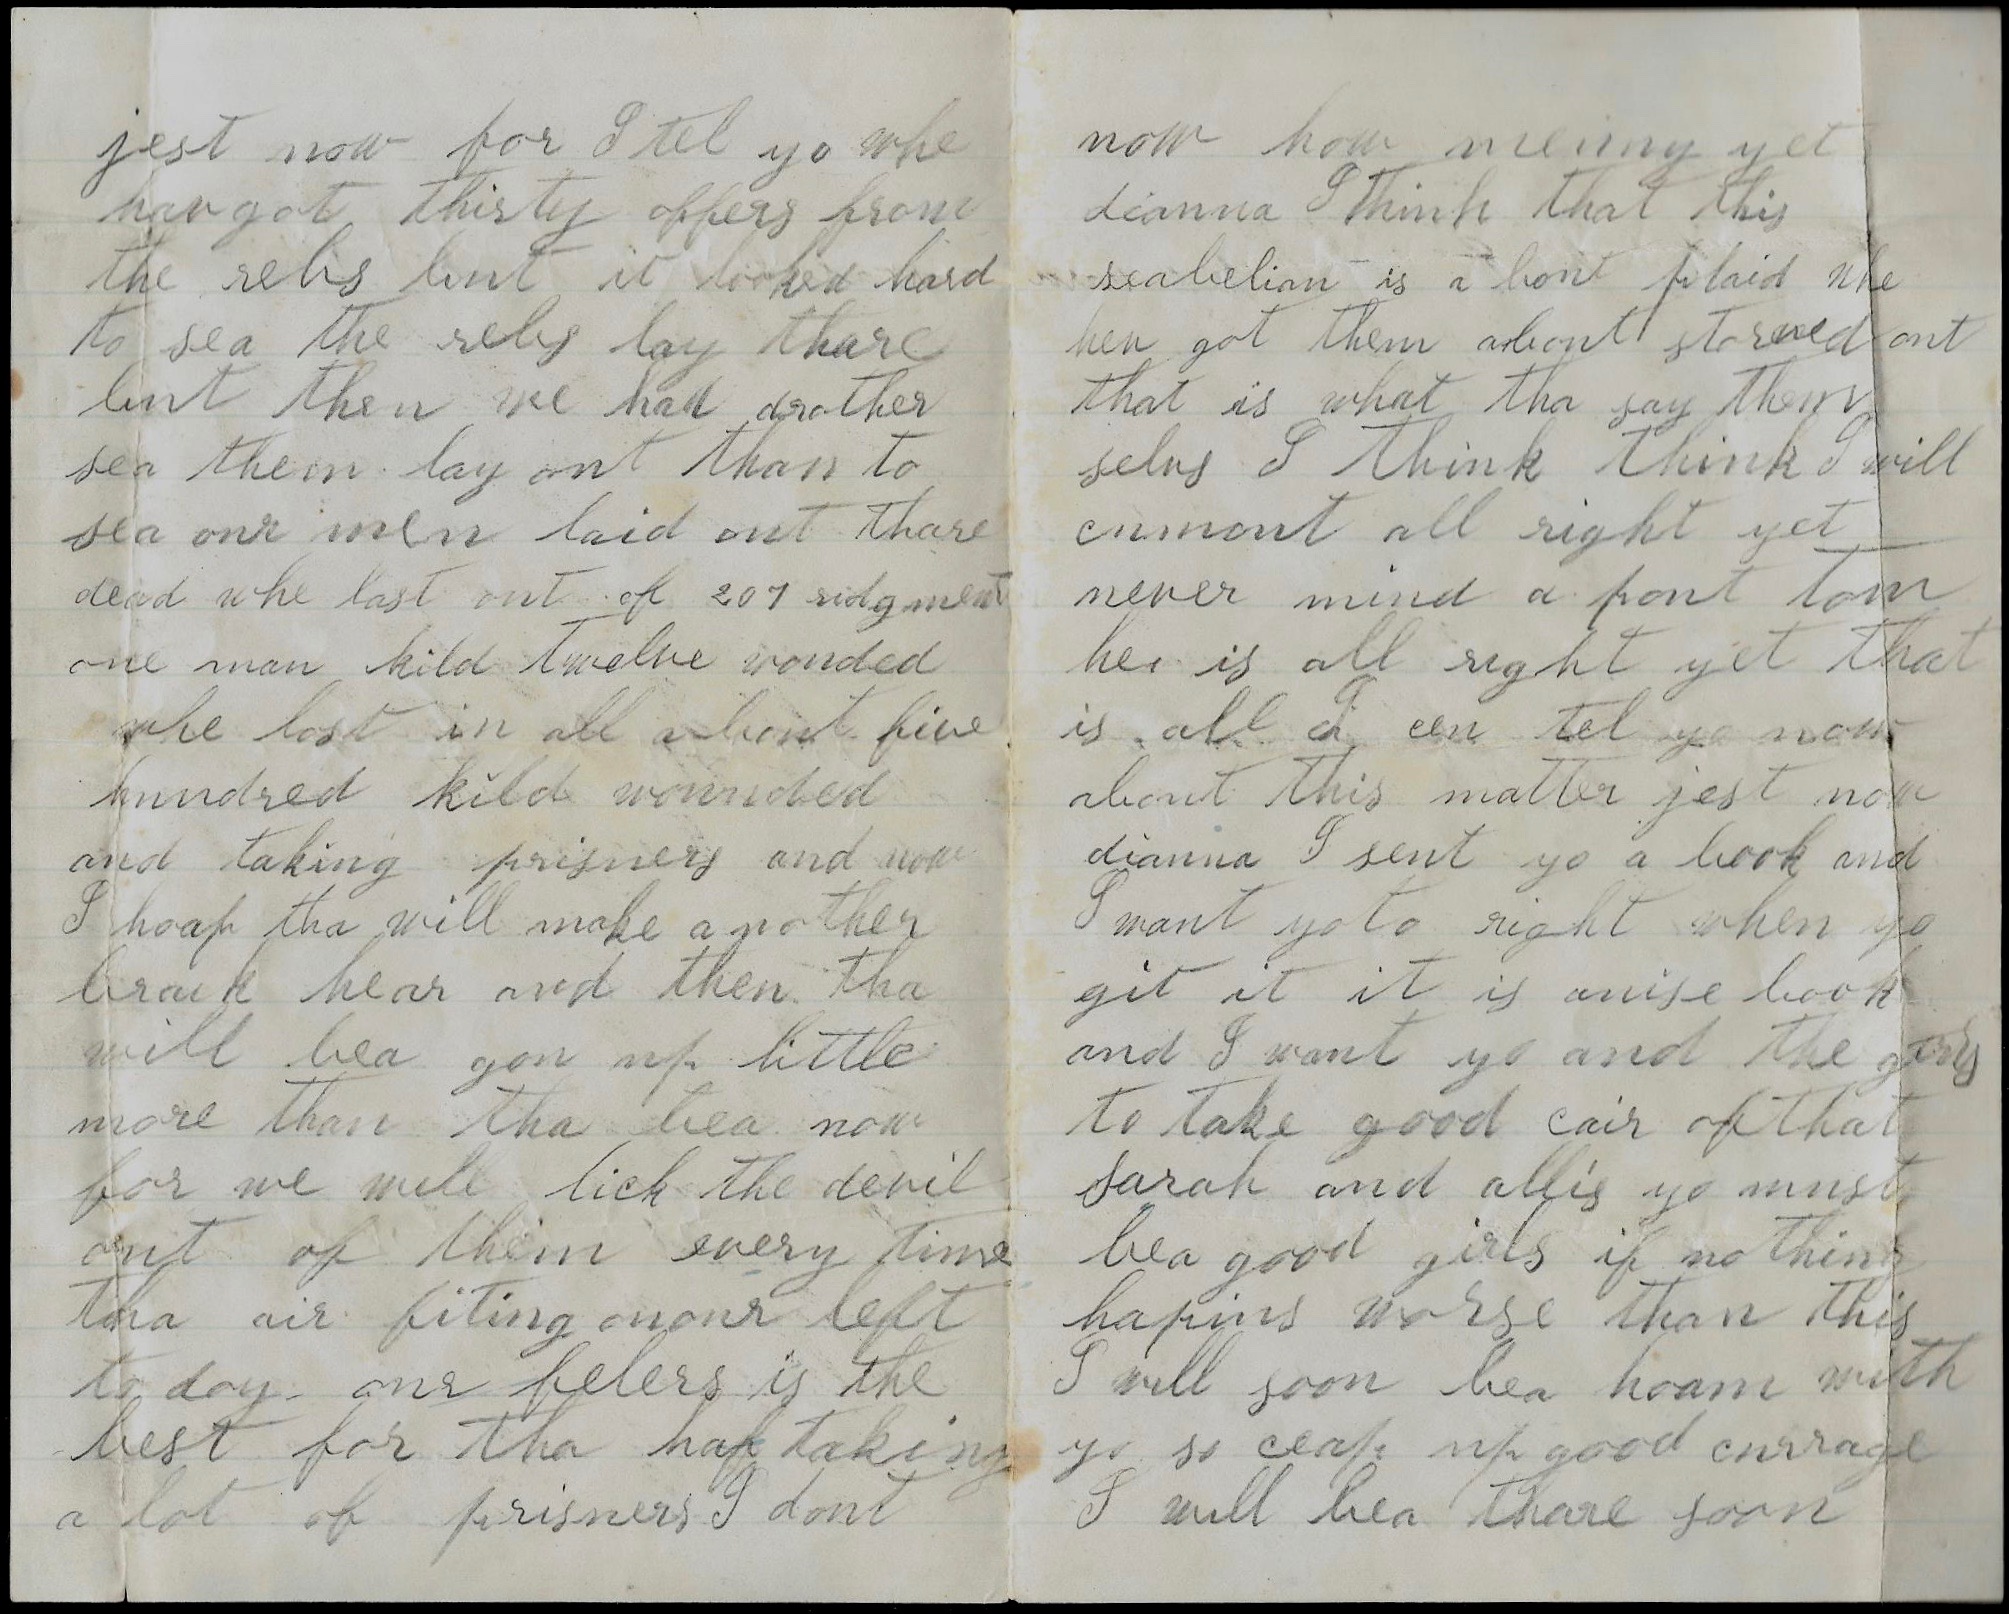 jest now for I tel yo whe
hav got thirty offers from
the rebs but it looked hard
to sea the rebs lay thare
but then we had drother
sea them lay out than to
sea our men laid out thare
dead whe lost out of 207 ridgment
one man kild twelve wonded
whe lost in all about five
hundred kild wounded
and taking prisners and now
I hoap tha will make a nother
brauk hear and then tha
will bea gon up little
more than tha bea now
for we will lick the devil
out of them every time
tha air fiting on our left
to day our felers is the
best for tha haf taking
a lot of prisners I dont
now how meinny yet
dianna I think that this
reabelian is a bout plaid whe
hev got them about starved out
that is what tha say them
selvs I think think I will
cumout all right yet
never mind a pout tom
hea is all right yet that
is all I cen tel yo now
about this matter jest now
dianna I sent yo a book and
I want yo to right when yo
git it it is a nise book
and I want yo and the girls
to take good cair of that
sarah and allis yo must
bea good girls if no thing
hapins worse than this
I will soon bea hoam with
yo so ceap up good currage
I will bea thare soon